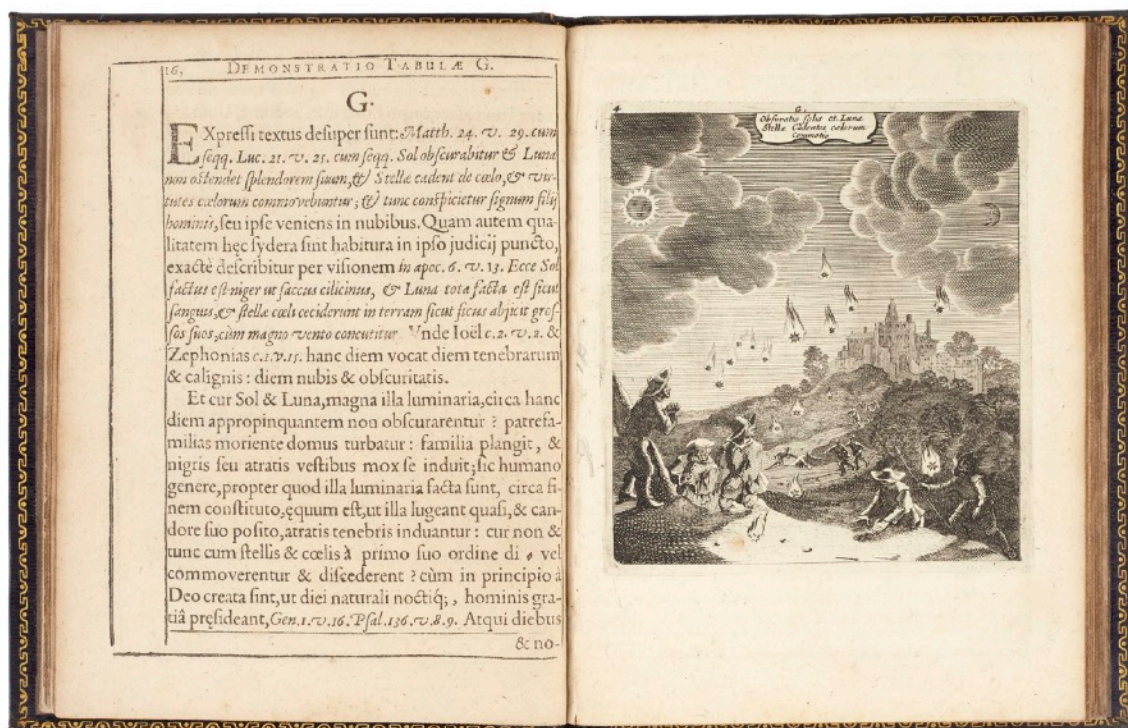 16. DEMONSTRATIO TABULÆ G.
G.
EXpreſſi textus deſuper ſunt: Matth. 24. v. 29. cum
ſeqq. Luc. 21. v. 25. cum ſeqq. Sol obſcurabitur & Luna
non oſtendet ſplendorem ſuum, & Stellæ cadent de cœlo, & vir-
tutes cœlorum commovebuntur; & tunc conſpicietur ſignum filij
hominis, ſeu ipſe veniens in nubibus. Quam autem qua-
litatem hęc ſydera ſint habitura in ipſo judicij puncto,
exactè deſcribitur per viſionem in apoc. 6. v. 13. Ecce Sol
factus eſt niger ut ſaccus cilicinus, & Luna tota facta eſt ſicut
ſanguis, & ſtellæ cœli ceciderunt in terram ſicut ficus abjicit groſ-
ſos ſuos, cùm magno vento concutitur Vnde Ioël c. 2. v. 2. &
Zephonias c. 1. v. 15. hanc diem vocat diem tenebrarum
& calignis: diem nubis & obſcuritatis.
Et cur Sol & Luna, magna illa luminaria, circa hanc
diem appropinquantem non obſcurarentur? patrefa-
milias moriente domus turbatur: familia plangit, &
nigris ſeu atratis veſtibus mox ſe induit; ſic humano
genere, propter quod illa luminaria facta ſunt, circa fi-
nem conſtituto, ęquum eſt, ut illa lugeant quaſi, & can-
dore ſuo poſito, atratis tenebris induantur: cur non &
tunc cum ſtellis & cœlis à primo ſuo ordine di vel
commoverentur & diſcederent? cùm in principio à
Deo creata ſint, ut diei naturali noctiq;, hominis gra-
tiâ pręſideant, Gen. 1. v. 16. Pſal. 136. v. 8. 9. Atqui diebus
& no-
4
G.
Obſcuratio ſolis et Lunæ
Stellæ Cadentes cœlorum
Commotio